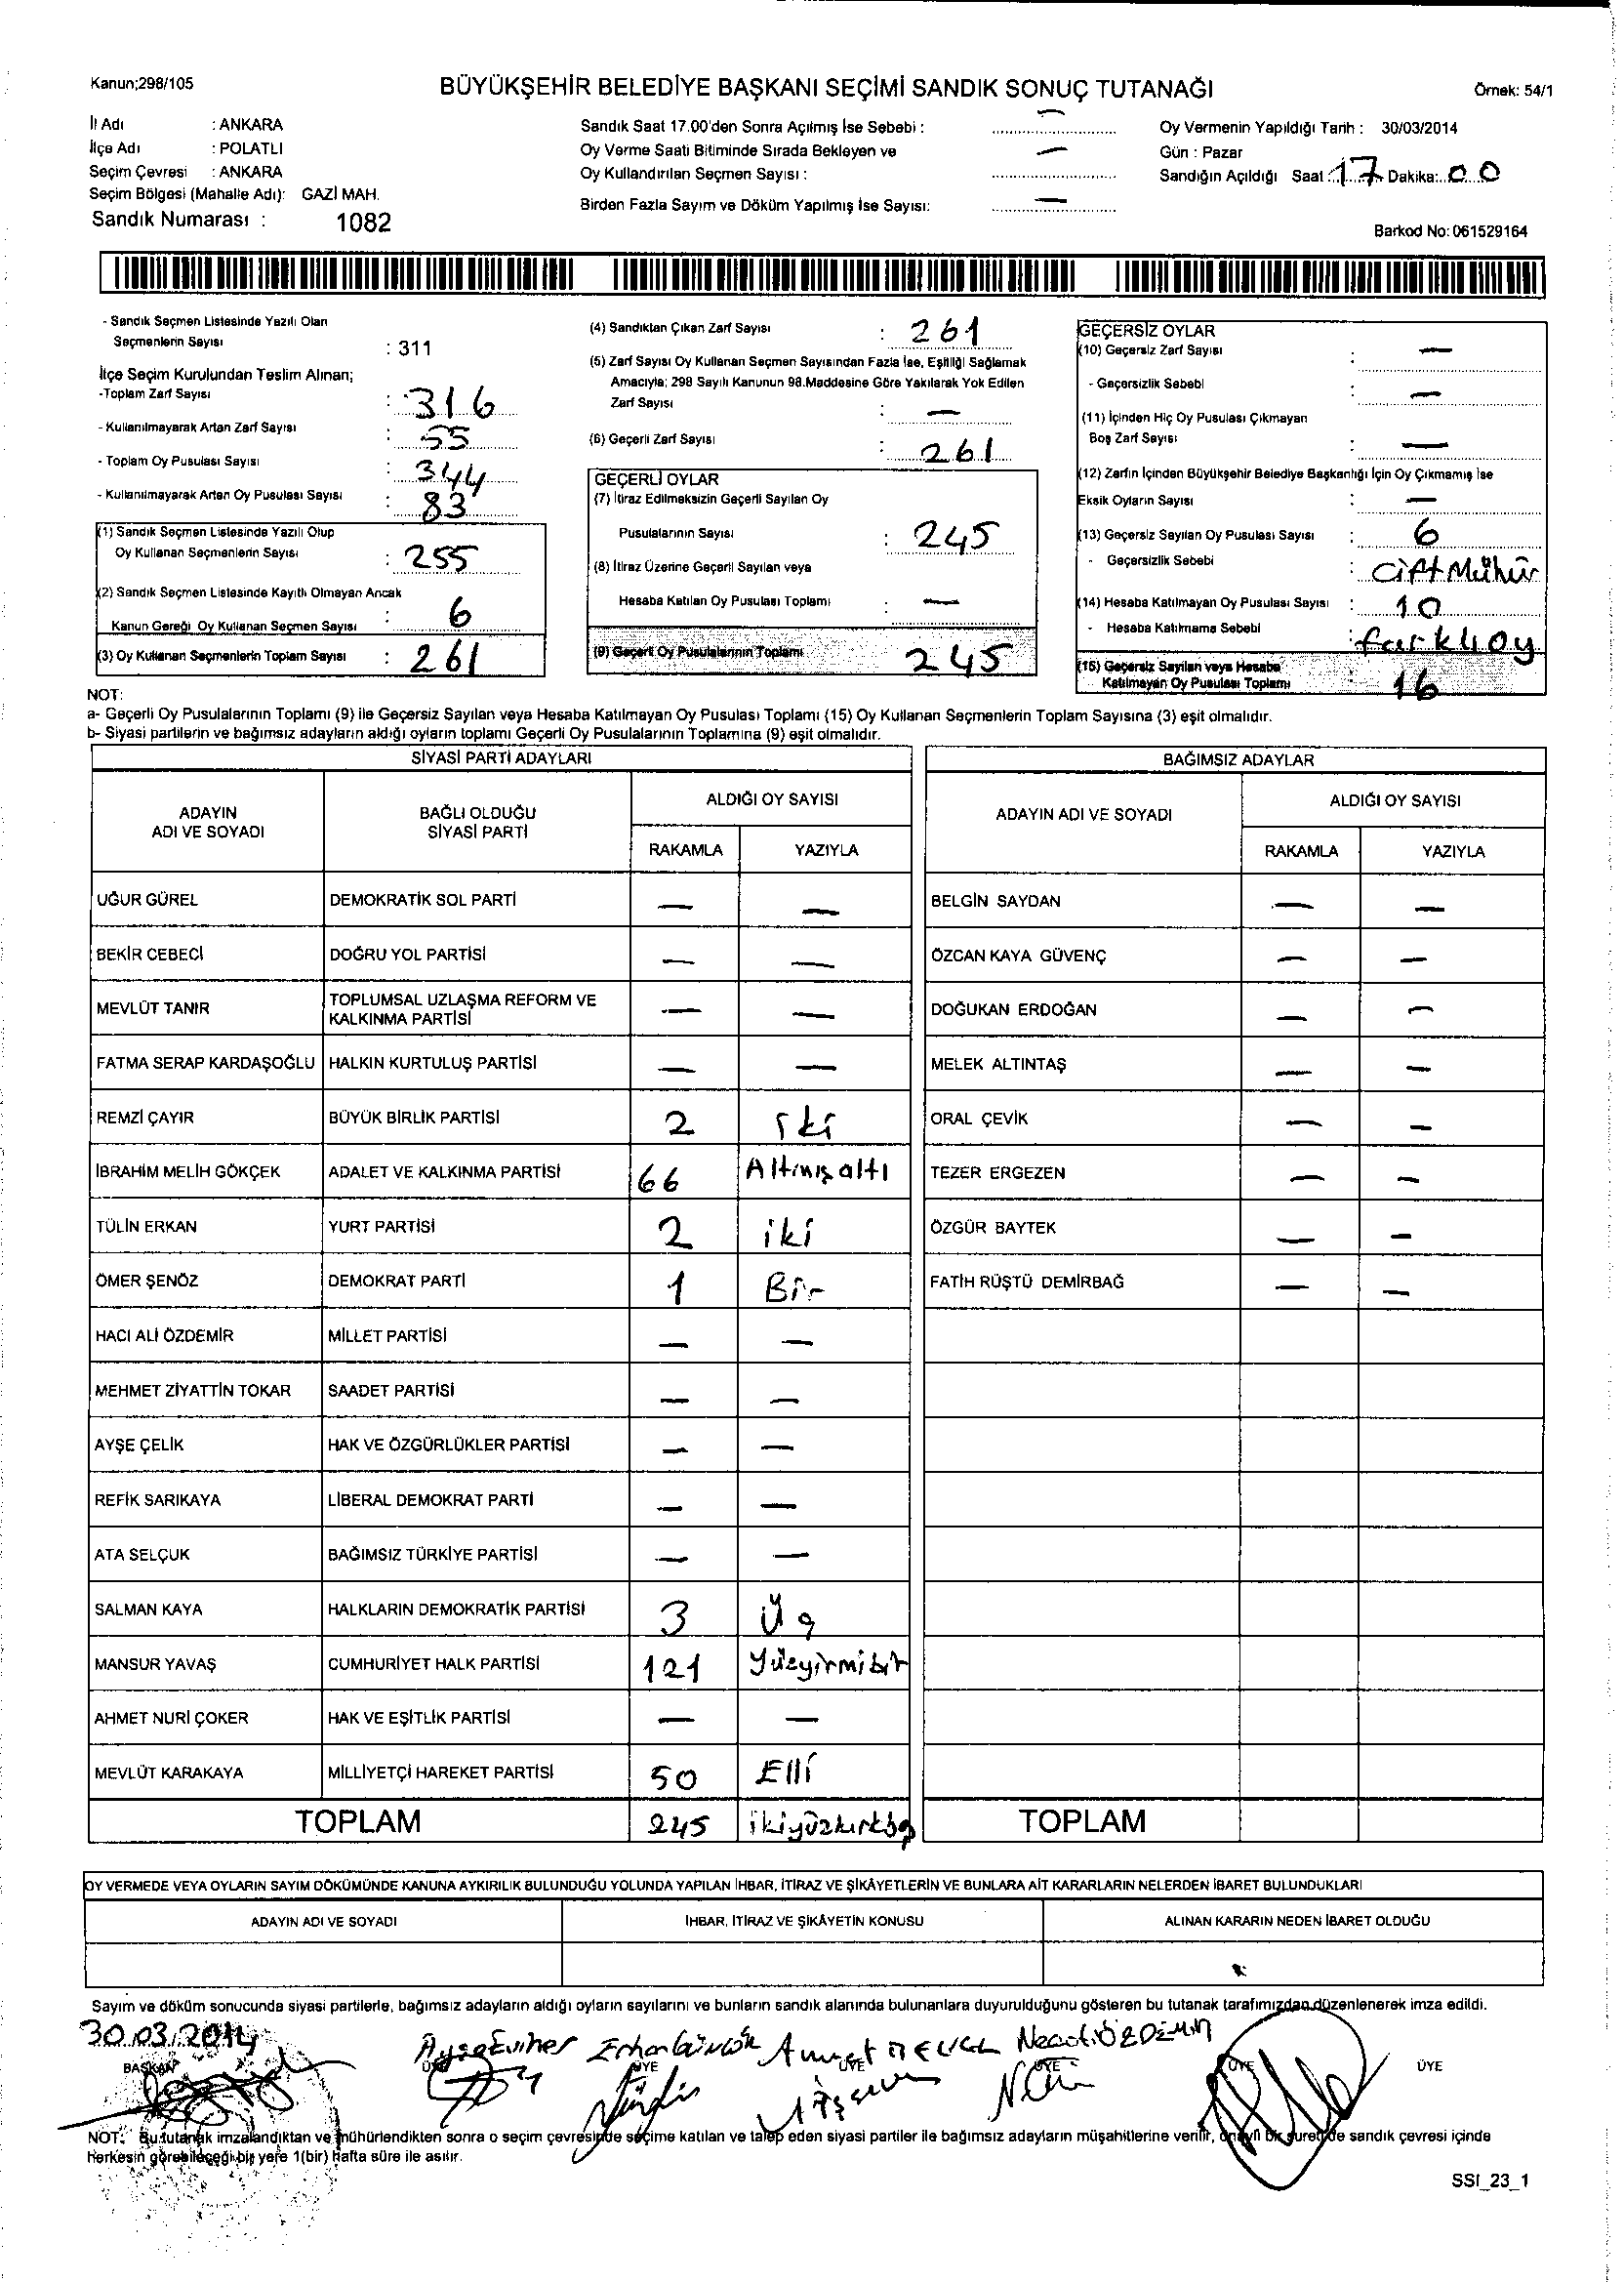 Kanun;298/105
BÜYÜKŞEHİR BELEDİYE BAŞKANI SEÇİMİ SANDIK SONUÇ TUTANAĞI
Örnek: 54/1
İl Adı : ANKARA
İlçe Adı : POLATLI
Seçim Çevresi : ANKARA
Seçim Bölgesi (Mahalle Adı): GAZİ MAH.
Sandık Numarası : 1082
Sandık Saat 17.00'den Sonra Açılmış İse Sebebi : —
Oy Verme Saati Bitiminde Sırada Bekleyen ve
Oy Kullandırılan Seçmen Sayısı : —
Birden Fazla Sayım ve Döküm Yapılmış İse Sayısı: —
Oy Vermenin Yapıldığı Tarih : 30/03/2014
Gün : Pazar
Sandığın Açıldığı Saat : 17 Dakika: 00
Barkod No: 061529164
- Sandık Seçmen Listesinde Yazılı Olan
Seçmenlerin Sayısı : 311
İlçe Seçim Kurulundan Teslim Alınan;
-Toplam Zarf Sayısı : 316
- Kullanılmayarak Artan Zarf Sayısı : 55
- Toplam Oy Pusulası Sayısı : 344
- Kullanılmayarak Artan Oy Pusulası Sayısı : 83
(1) Sandık Seçmen Listesinde Yazılı Olup
Oy Kullanan Seçmenlerin Sayısı : 255
(2) Sandık Seçmen Listesinde Kayıtlı Olmayan Ancak
Kanun Gereği Oy Kullanan Seçmen Sayısı : 6
(3) Oy Kullanan Seçmenlerin Toplam Sayısı : 261
(4) Sandıktan Çıkan Zarf Sayısı : 261
(5) Zarf Sayısı Oy Kullanan Seçmen Sayısından Fazla İse, Eşitliği Sağlamak
Amacıyla; 298 Sayılı Kanunun 98.Maddesine Göre Yakılarak Yok Edilen
Zarf Sayısı : —
(6) Geçerli Zarf Sayısı : 261
GEÇERLİ OYLAR
(7) İtiraz Edilmeksizin Geçerli Sayılan Oy
Pusulalarının Sayısı : 245
(8) İtiraz Üzerine Geçerli Sayılan veya
Hesaba Katılan Oy Pusulası Toplamı : —
(9) Geçerli Oy Pusulalarının Toplamı 245
GEÇERSİZ OYLAR
(10) Geçersiz Zarf Sayısı : —
- Geçersizlik Sebebi : —
(11) İçinden Hiç Oy Pusulası Çıkmayan
Boş Zarf Sayısı : —
(12) Zarfın İçinden Büyükşehir Belediye Başkanlığı İçin Oy Çıkmamış İse
Eksik Oyların Sayısı : —
(13) Geçersiz Sayılan Oy Pusulası Sayısı : 6
- Geçersizlik Sebebi : Çift Mühür
(14) Hesaba Katılmayan Oy Pusulası Sayısı : 10
- Hesaba Katılmama Sebebi : farklı oy
(15) Geçersiz Sayılan veya Hesaba
Katılmayan Oy Pusulası Toplamı 16
NOT:
a- Geçerli Oy Pusulalarının Toplamı (9) ile Geçersiz Sayılan veya Hesaba Katılmayan Oy Pusulası Toplamı (15) Oy Kullanan Seçmenlerin Toplam Sayısına (3) eşit olmalıdır.
b- Siyasi partilerin ve bağımsız adayların aldığı oyların toplamı Geçerli Oy Pusulalarının Toplamına (9) eşit olmalıdır.
SİYASİ PARTİ ADAYLARI
ADAYIN ADI VE SOYADI BAĞLI OLDUĞU SİYASİ PARTİ ALDIĞI OY SAYISI
RAKAMLA YAZIYLA
UĞUR GÜREL DEMOKRATİK SOL PARTİ — —
BEKİR CEBECİ DOĞRU YOL PARTİSİ — —
MEVLÜT TANIR TOPLUMSAL UZLAŞMA REFORM VE KALKINMA PARTİSİ — —
FATMA SERAP KARDAŞOĞLU HALKIN KURTULUŞ PARTİSİ — —
REMZİ ÇAYIR BÜYÜK BİRLİK PARTİSİ 2 iki
İBRAHİM MELİH GÖKÇEK ADALET VE KALKINMA PARTİSİ 66 Altmışaltı
TÜLİN ERKAN YURT PARTİSİ 2 iki
ÖMER ŞENÖZ DEMOKRAT PARTİ 1 Bir
HACI ALİ ÖZDEMİR MİLLET PARTİSİ — —
MEHMET ZİYATTİN TOKAR SAADET PARTİSİ — —
AYŞE ÇELİK HAK VE ÖZGÜRLÜKLER PARTİSİ — —
REFİK SARIKAYA LİBERAL DEMOKRAT PARTİ — —
ATA SELÇUK BAĞIMSIZ TÜRKİYE PARTİSİ — —
SALMAN KAYA HALKLARIN DEMOKRATİK PARTİSİ 3 Üç
MANSUR YAVAŞ CUMHURİYET HALK PARTİSİ 121 Yüzyirmibir
AHMET NURİ ÇOKER HAK VE EŞİTLİK PARTİSİ — —
MEVLÜT KARAKAYA MİLLİYETÇİ HAREKET PARTİSİ 50 Elli
TOPLAM 245 ikiyüzkırkbeş
BAĞIMSIZ ADAYLAR
ADAYIN ADI VE SOYADI ALDIĞI OY SAYISI
RAKAMLA YAZIYLA
BELGİN SAYDAN — —
ÖZCAN KAYA GÜVENÇ — —
DOĞUKAN ERDOĞAN — —
MELEK ALTINTAŞ — —
ORAL ÇEVİK — —
TEZER ERGEZEN — —
ÖZGÜR BAYTEK — —
FATİH RÜŞTÜ DEMİRBAĞ — —
TOPLAM
OY VERMEDE VEYA OYLARIN SAYIM DÖKÜMÜNDE KANUNA AYKIRILIK BULUNDUĞU YOLUNDA YAPILAN İHBAR, İTİRAZ VE ŞİKÂYETLERİN VE BUNLARA AİT KARARLARIN NELERDEN İBARET BULUNDUKLARI
ADAYIN ADI VE SOYADI İHBAR, İTİRAZ VE ŞİKÂYETİN KONUSU ALINAN KARARIN NEDEN İBARET OLDUĞU
Sayım ve döküm sonucunda siyasi partilerle, bağımsız adayların aldığı oyların sayılarını ve bunların sandık alanında bulunanlara duyurulduğunu gösteren bu tutanak tarafımızdan düzenlenerek imza edildi.
30.03.2014
Necati ÖZDEMİR
BAŞKAN ÜYE ÜYE ÜYE ÜYE ÜYE ÜYE
NOT: Bu tutanak imzalandıktan ve mühürlendikten sonra o seçim çevresinde seçime katılan ve talep eden siyasi partiler ile bağımsız adayların müşahitlerine verilir, onaylı bir sureti de sandık çevresi içinde
herkesin görebileceği bir yere 1(bir) hafta süre ile asılır.
SSI_23_1